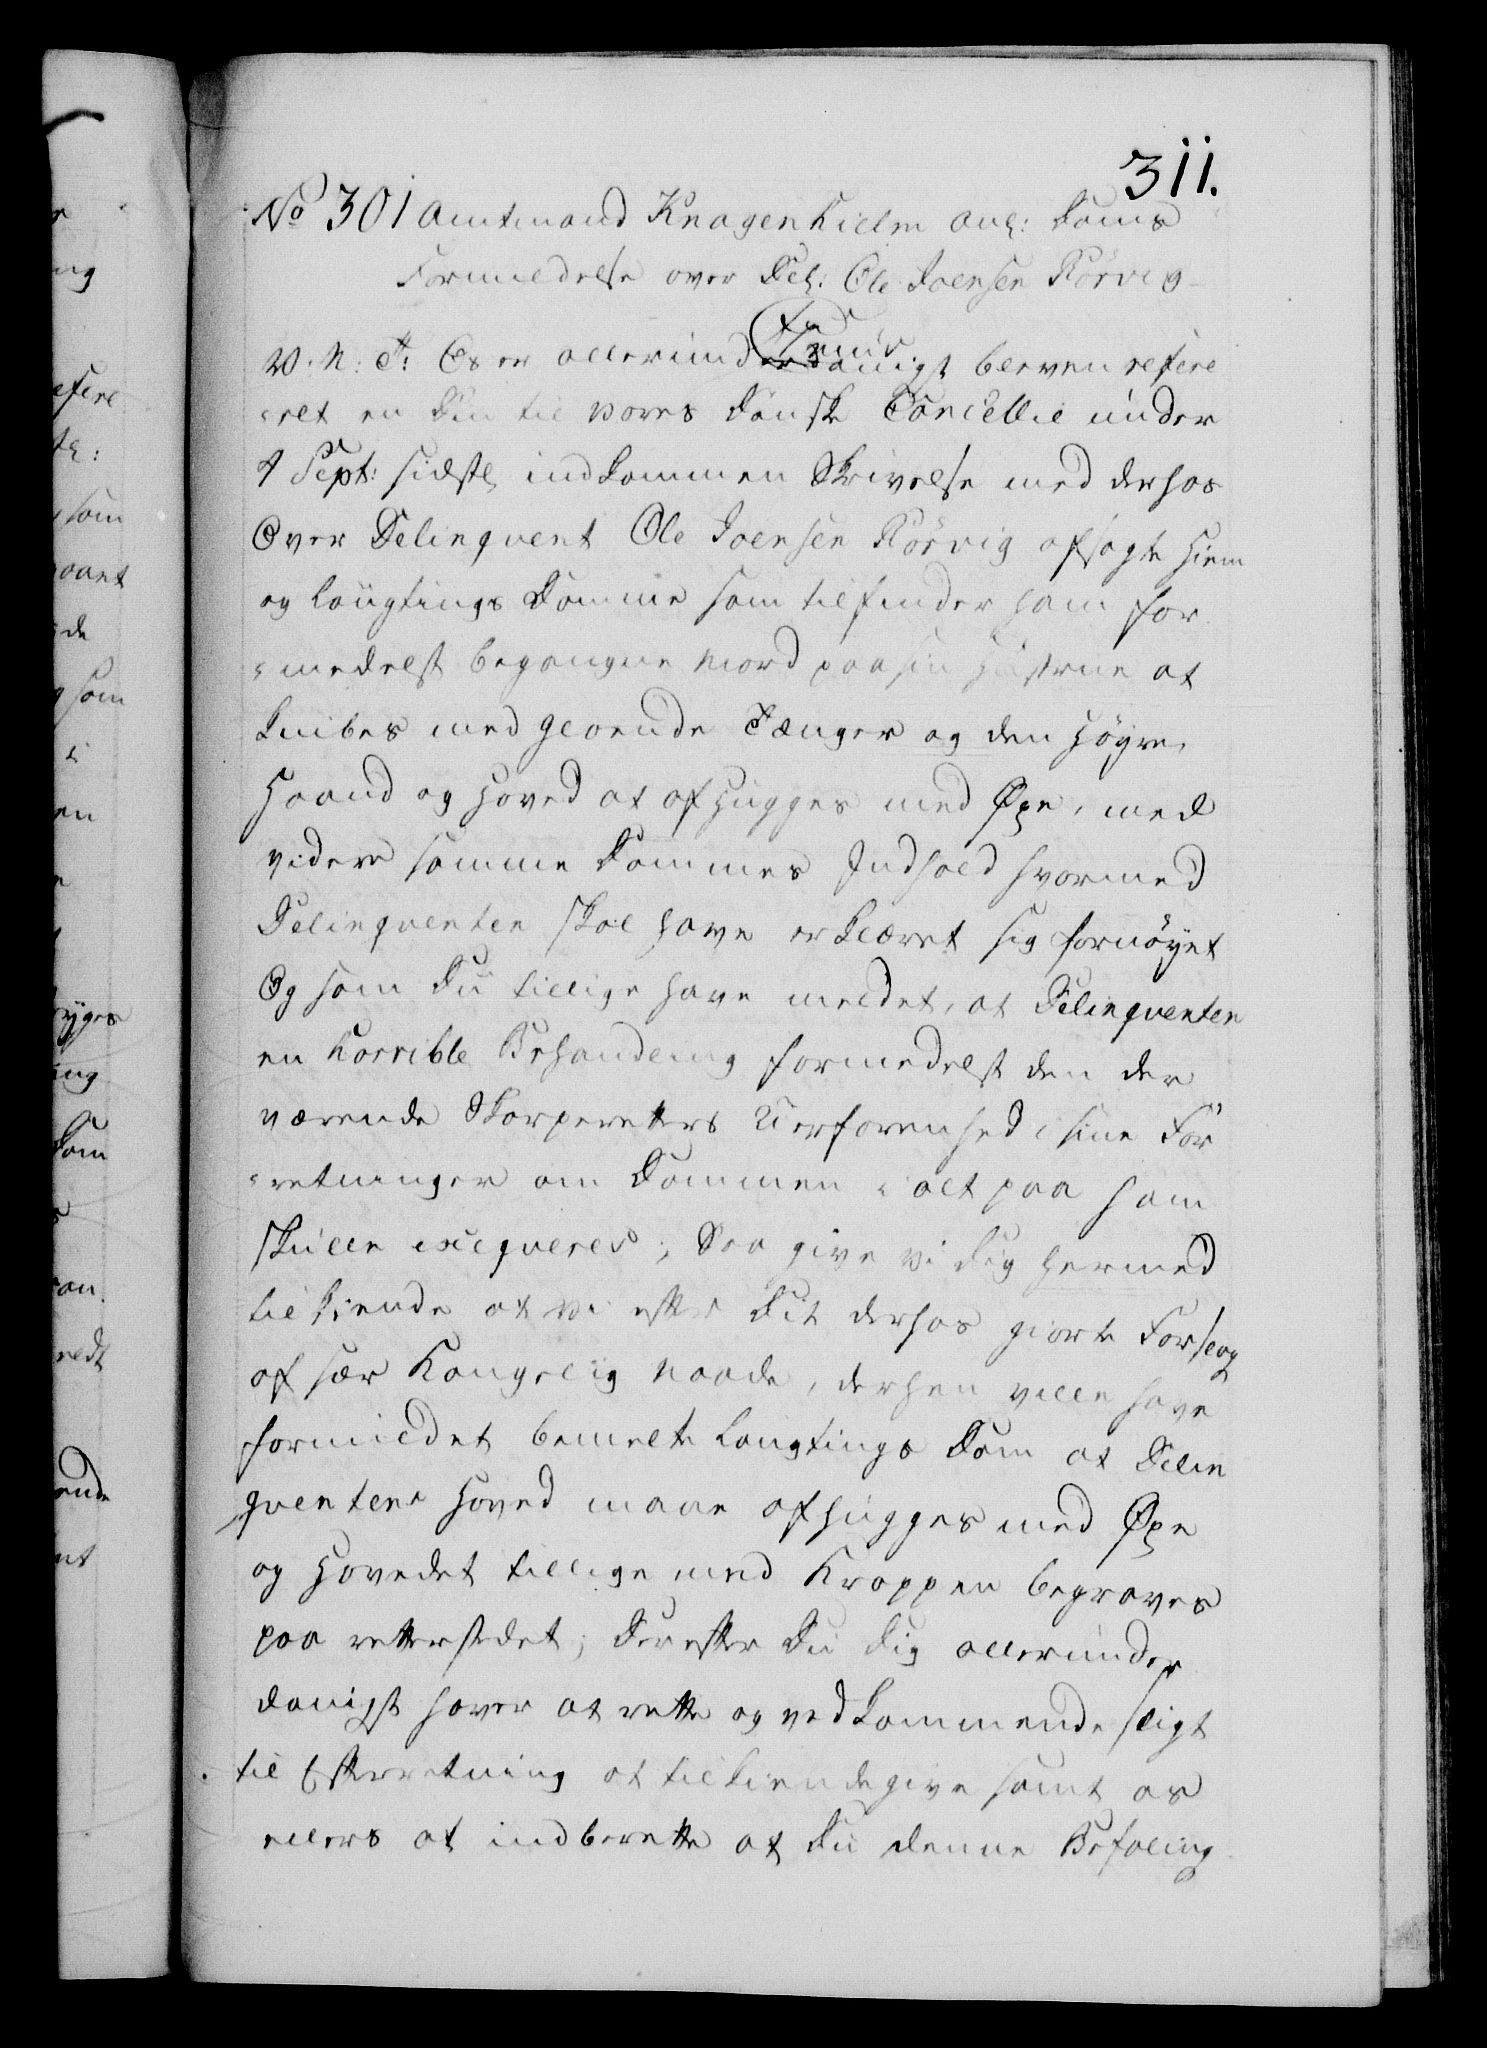 311.
No 301 Amtmand Knagenhielm anl: Doms
Formildelse over Del: Ole Joensen Rörvig
V. G: T: Os er allerunderdanigst bleven refere
-ret en Din til vores Danske Cancellie under
4 Sept: sidstl indkommen Skrivelse med derhos
Over Delinqvent Ole Joensen Rörvig afsagte Hiem
og Laugtings Domme som tilfinder ham for
-medelst begangne Mord paa sin Hustrue at
knibes med gloende Tænger og den Höyre
Haand og Hoved at afhugges med Øxe, med
videre samme Dommes Indhold hvormed
Delinqventen skal have erklæret sig fornöyet
Og som Du tillige have meldet, at Delinqventen
en horrible Behandling formedelst den der
værende Skarpretters Uerfarenhed i sine For
-retninger om Dommen i alt paa ham
skulle exeqveres; Saa give vi dig hermed
tilkiende at vi efter Dit derhos giorte Forslag
af sær Kongelig Naade, derhen ville have
formildet bemelte Laugtings Dom at Delin
qventens Hoved maae afhugges med Øxe
og Hovedet tillige med Kroppen begraves
paa retterstedet; Derefter Du dig allerunder
danigst haver at rette og vedkommende sligt
til Efterretning at tilkiendegive samt os
ellers at indberette at Du denne Befaling